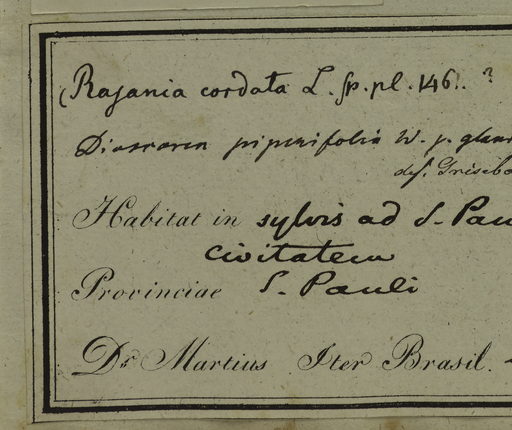 (Rajania cordata L. sp. pl. 146. ?
Dioscorea piperifolia W. γ. glan
def. Griseb
Habitat in sylvis ad S. Pau
civitatem
Provinciae S. Pauli
Dr Martius Iter Brasil.